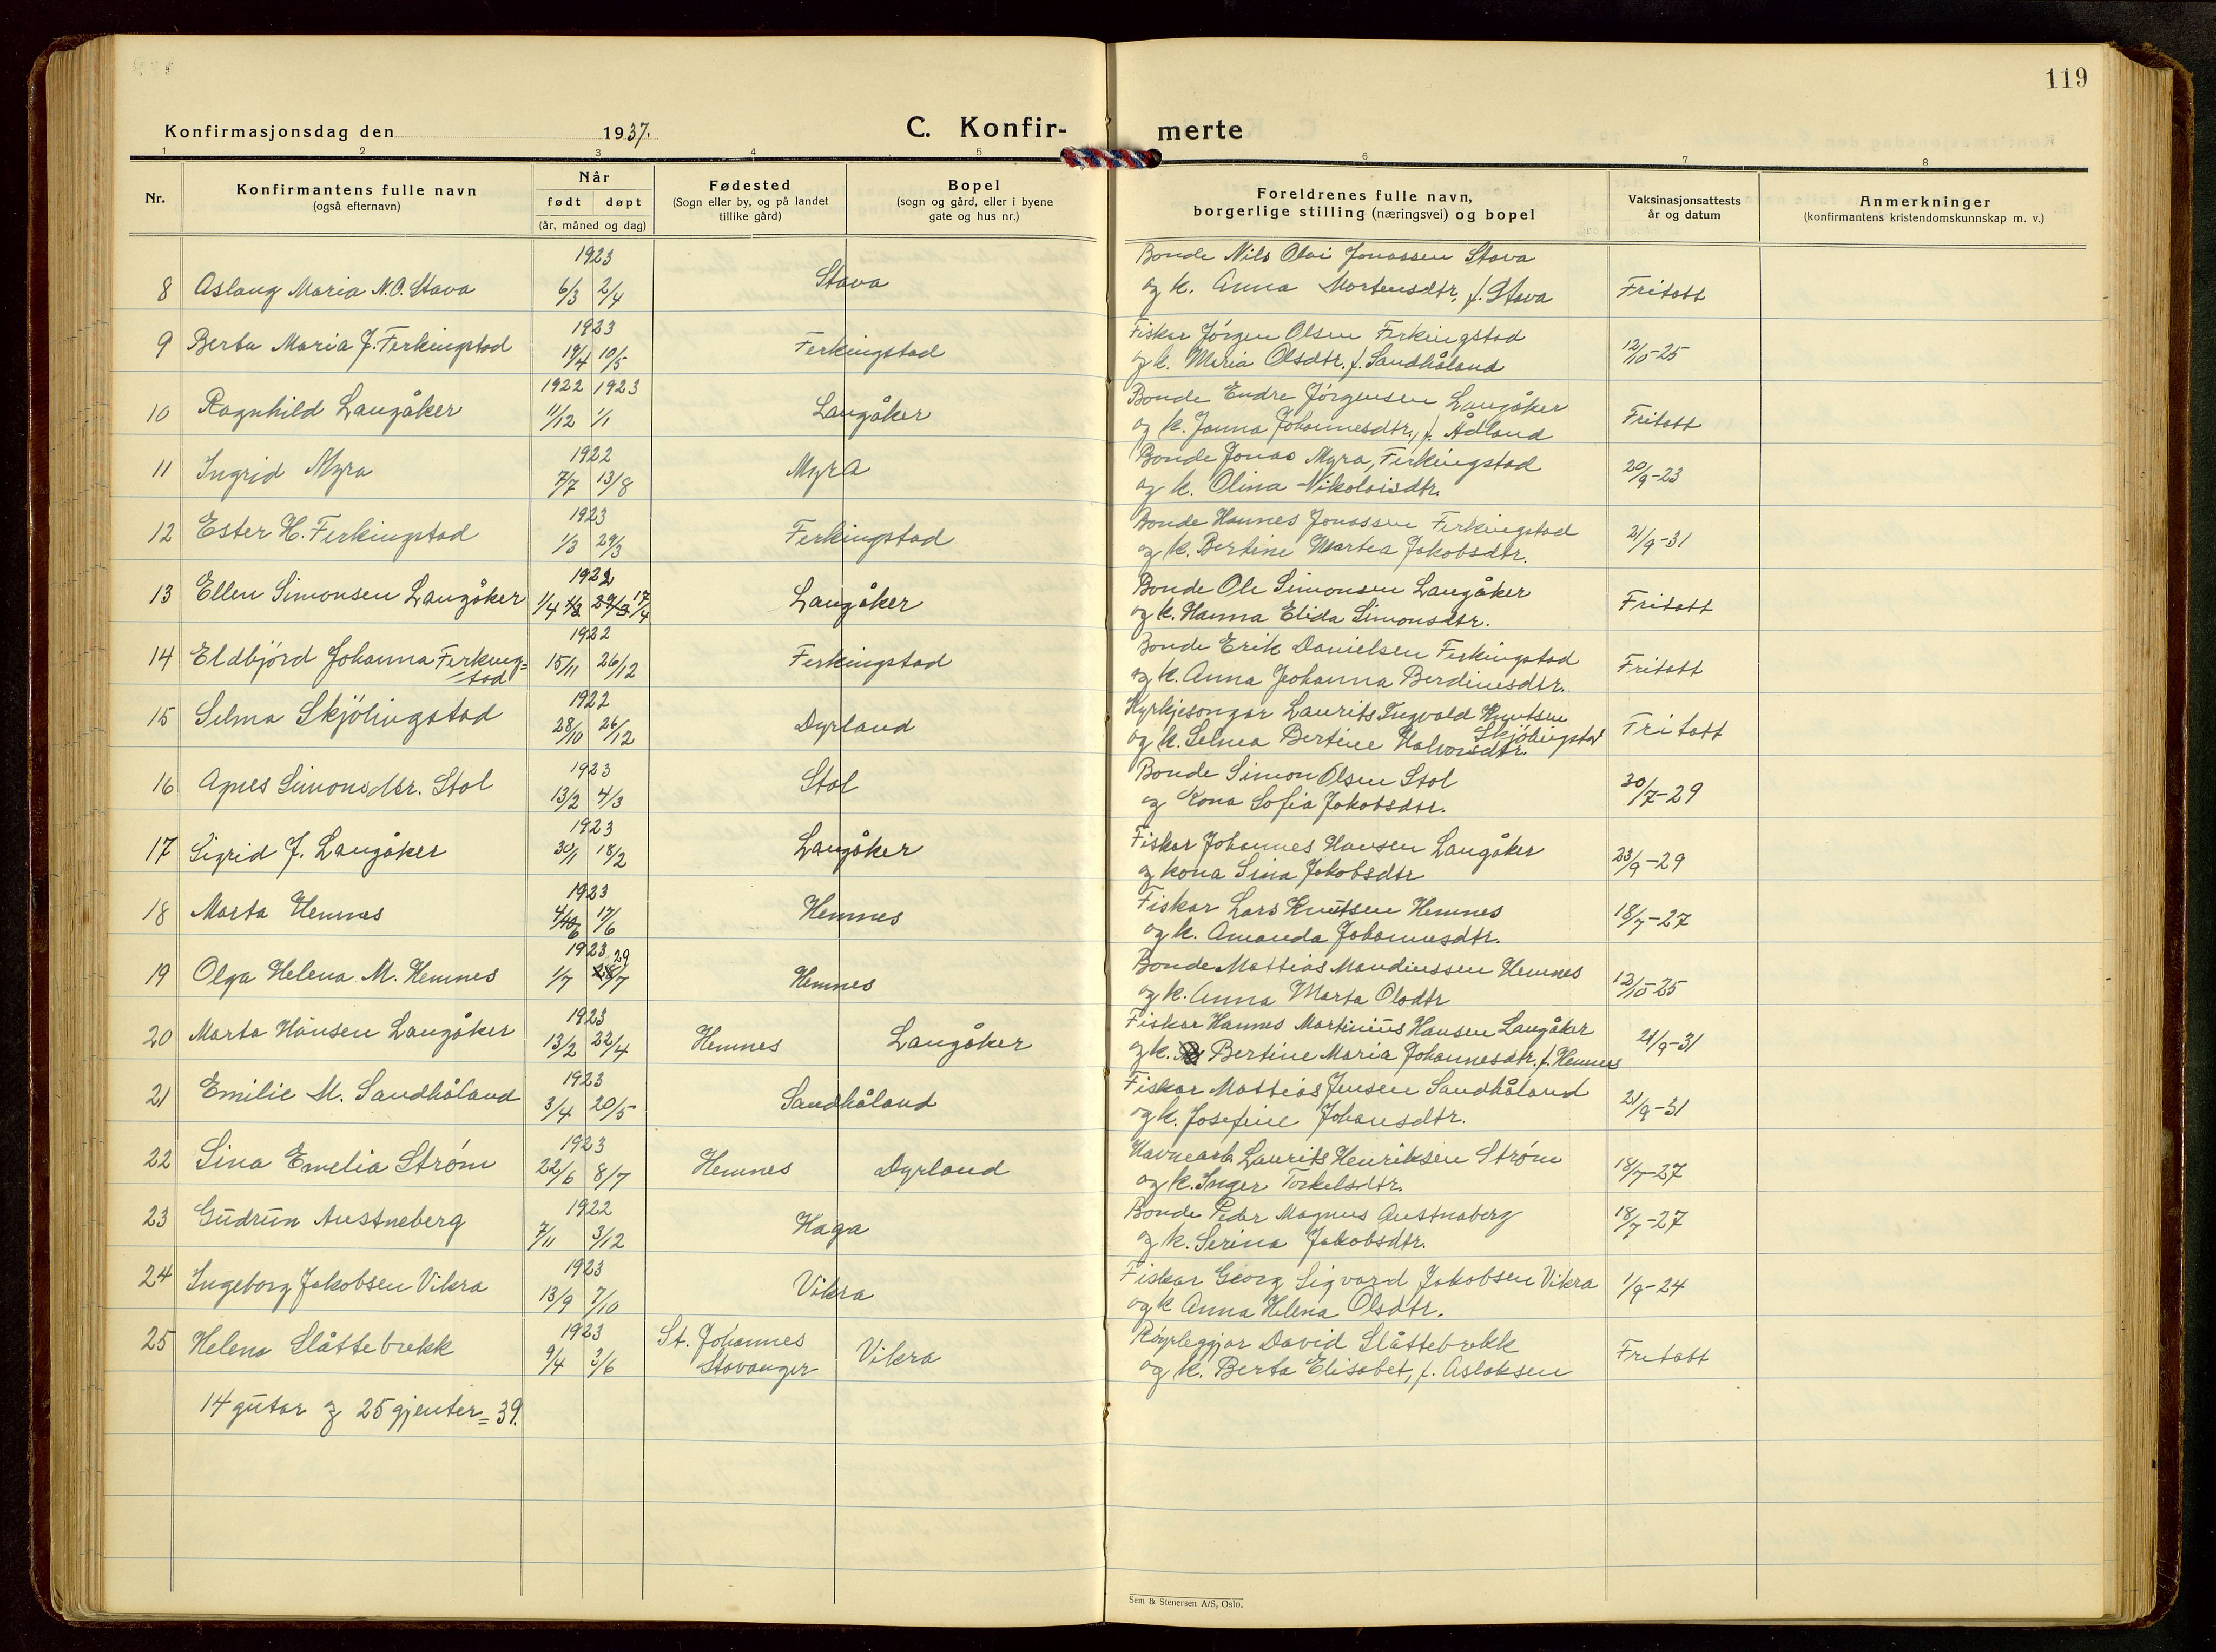 119
Konfirmasjonsdag den 1937.
C. Konfir-merte
1 2 3 4 5 6 7 8
Nr.
Konfirmantens fulle navn
(også efternavn)
Når
født døpt
(år, måned og dag)
Fødested
(Sogn eller by, og på landet
tillike gård)
Bopel
(sogn og gård, eller i byene
gate og hus nr.)
Foreldrenes fulle navn,
borgerlige stilling (næringsvei) og bopel
Vaksinasjonsattests
år og datum
Anmerkninger
(konfirmantens kristendomskunnskap m. v.)
1923 Bonde Nils Olai Jonassen Stava
8 Aslaug Maria N.O. Stava 6/3 2/4 Stava og k. Anna Mortensdtr, f. Stava Fritatt
1923 Fiskar Jörgen Olsen Ferkingstad
9 Berta Maria J. Ferkingstad 19/4 10/5 Ferkingstad og k. Maria Olsdtr. f. Sandhåland 12/10-25
1922 1923 Bonde Endre Jörgensen Langåker
10 Ragnhild Langåker 11/12 1/1 Langåker og k. Janna Johannesdtr., f. Ådland Fritatt
1922 Bonde Jonas Myra, Ferkingstad
11 Ingrid Myra 7/7 13/8 Myra og k. Olina Nikolaisdtr. 20/9-23
1923 Bonde Hannes Jonassen Ferkingstad
12 Ester H. Ferkingstad 1/3 29/3 Ferkingstad og k. Bertine Martea Jakobsdtr. 21/9-31
1922 Bonde Ole Simonsen Langåker
13 Ellen Simonsen Langåker 1/4 1/3 29/3 17/4 Langåker og k. Hanna Elida Simonsdtr. Fritatt
1922 Bonde Erik Danielsen Ferkingstad
14 Eldbjörd Johanna Ferking= 15/11 26/12 Ferkingstad og k. Anna Johanna Berdinesdtr. Fritatt
stad
1922 Kyrkjesongar Laurits Ingvald Knutsen
15 Selma Skjölingstad 28/10 26/12 Dyrland Skjölingstad Fritatt
og k. Selma Bertine Halvorsdtr.
1923 Bonde Simon Olsen Stol
16 Agnes Simonsdtr. Stol 13/2 4/3 Stol og Kona Sofia Jakobsdtr. 30/7-29
1923 Fiskar Johannes Hansen Langåker
17 Sigrid J. Langåker 30/1 18/2 Langåker og kona Sina Jakobsdtr 23/9-29
1923 Fiskar Lars Knutsen Hemnes
18 Marta Hemnes 4/10 6 17/6 Hemnes og k. Amanda Johannesdtr. 18/7-27
1923 29 Bonde Mattias Mandiussen Hemnes
19 Olga Helena M. Hemnes 1/7 28/7 Hemnes og k. Anna Marta Olsdtr 12/10-25
1923 Fiskar Hannes Martinius Hansen Langåker
20 Marta Hansen Langåker 13/2 22/4 Hemnes Langåker og k. Bertine Maria Johannesdtr. f. Hemnes 21/9-31
1923 Fiskar Mattias Jensen Sandhåland
21 Emilie M. Sandhåland 3/4 20/5 Sandhåland og k. Josefine Johansdtr. 21/9-31
1923 Havnearb. Laurits Henriksen Ström
22 Sina Emelia Ström 22/6 8/7 Hemnes Dyrland og k. Inger Torkelsdtr. 18/7-27
1922 Bonde Peder Magnus Austnaberg
23 Gudrun Austneberg 7/11 3/12 Haga og k. Serina Jakobsdtr. 18/7-27
1923 Fiskar Georg Sigvard Jakobsen Vikra
24 Ingeborg Jakobsen Vikra 13/9 7/10 Vikra og k Anna Helena Olsdtr. 1/9-24
1923 Röyrleggjar David Slåttebrekk
25 Helena Slåttebrekk 9/4 3/6 St. Johannes Stavanger Vikra og k. Berta Elisabet, f. Aslaksen Fritatt
14 gutar og 25 gjenter = 39.
Sem & Stenersen A/S, Oslo.